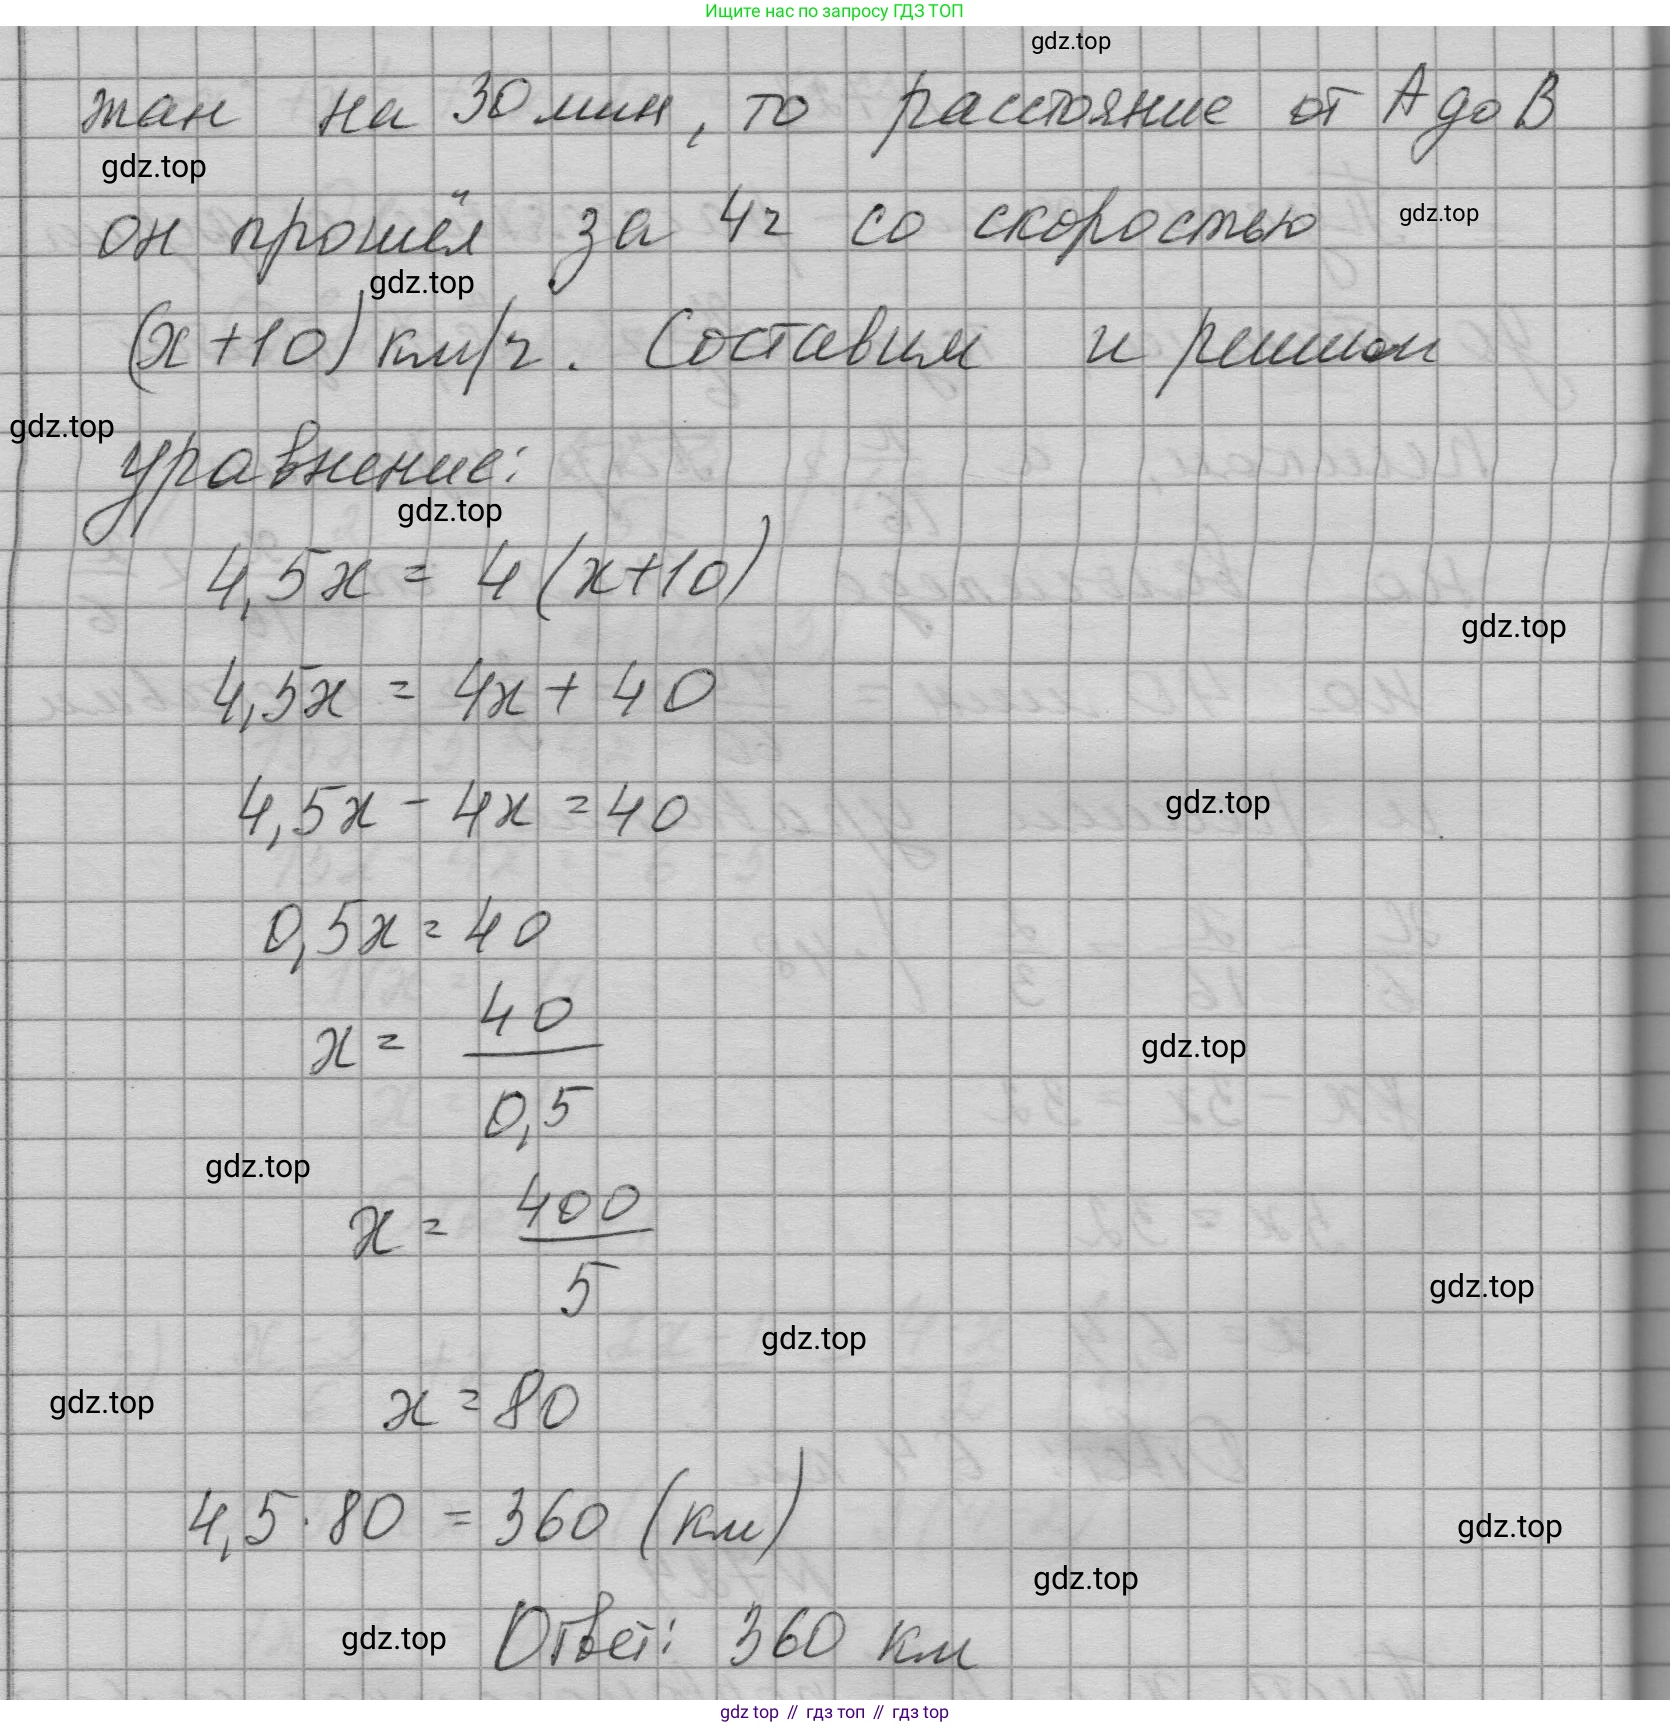 Ищите нас по запросу ГДЗ ТОП
gdz.top
жан на 30 мин, то расстояние от A до B
gdz.top
он прошёл за 4 ч со скоростью
gdz.top
gdz.top
(x+10) км/ч. Составим и решим
gdz.top
уравнение:
gdz.top
4,5x = 4(x+10)
gdz.top
4,5x = 4x + 40
4,5x - 4x = 40
gdz.top
0,5x = 40
x = 40/0,5
gdz.top
gdz.top
x = 400/5
gdz.top
gdz.top
x = 80
gdz.top
4,5·80 = 360 (км)
gdz.top
gdz.top
Ответ: 360 км
gdz.top
gdz top // гдз топ // гдз top